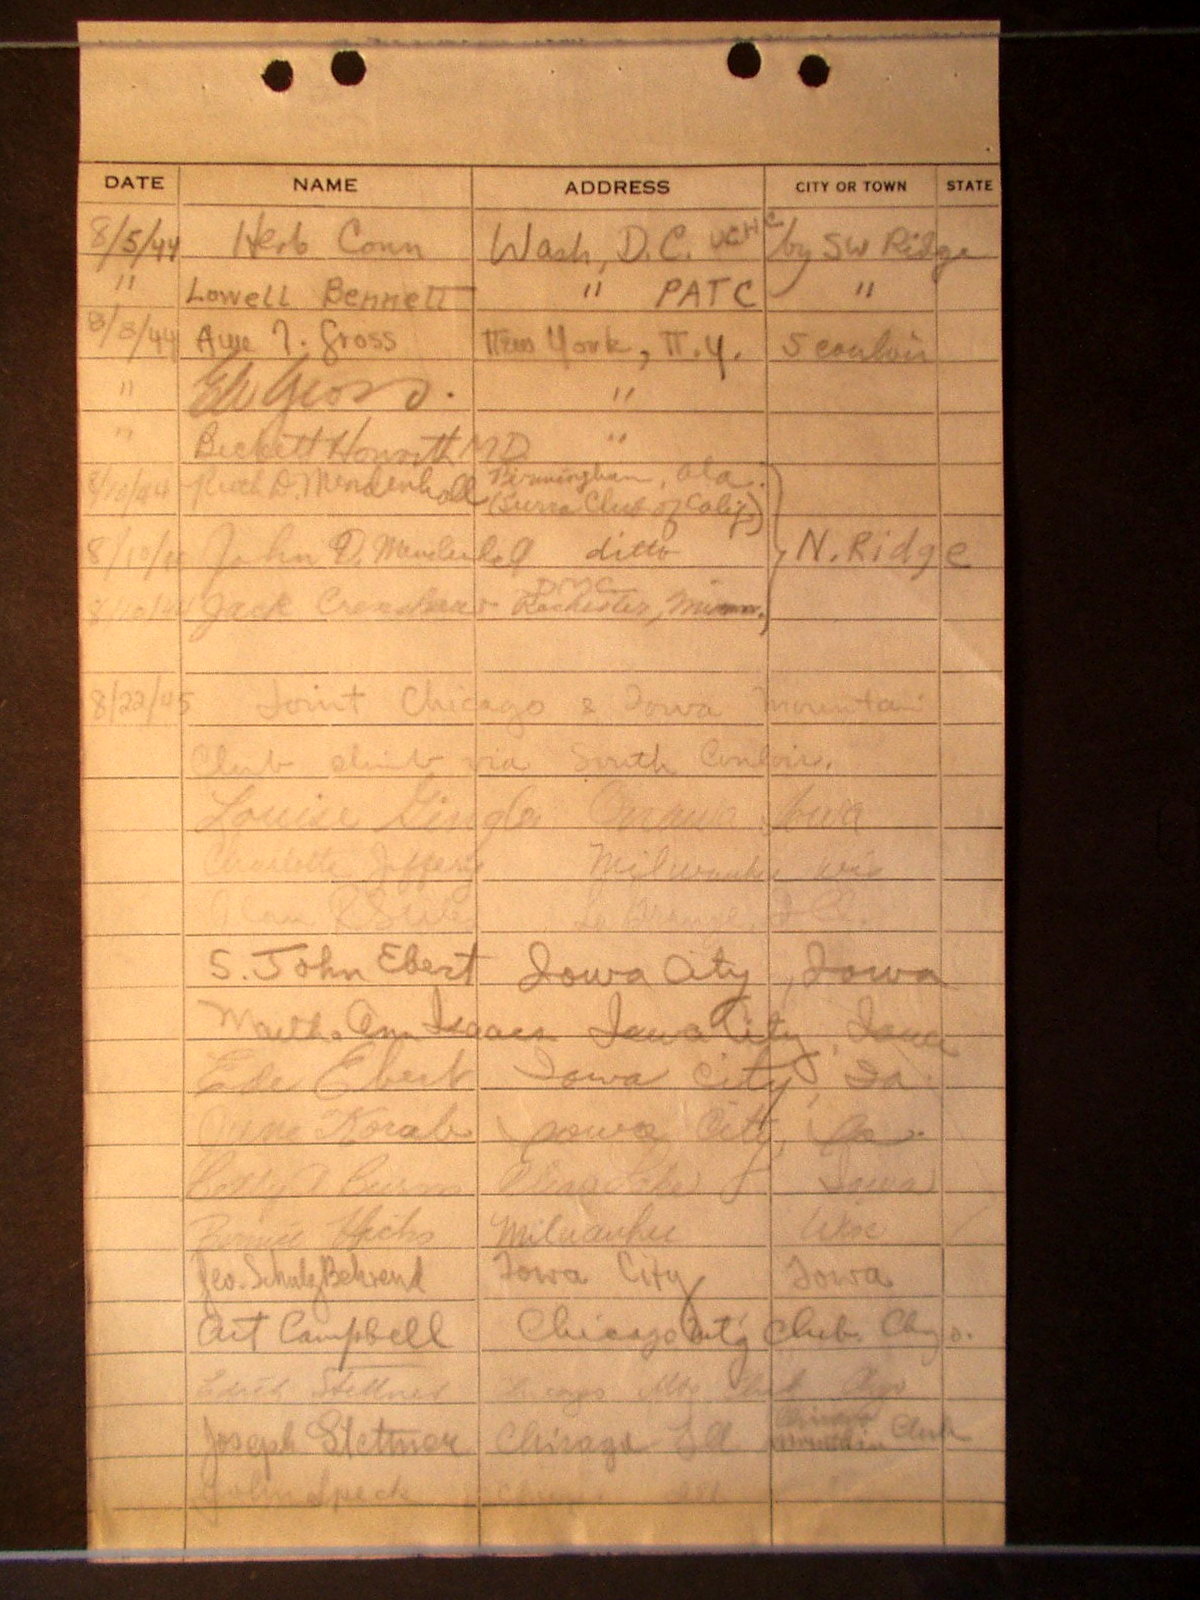 DATE NAME ADDRESS CITY OR TOWN STATE
8/5/44 Herb Conn Wash, D.C. by SW Ridge
" Lowell Bennett " PATC "
8/8/44 T. Gross New York, N.Y. S couloir
" Gross. "
" Beckett Howorth MD "
8/10/44 Ruth D. Mendenhall Birmingham, Ala.
(Sierra Club of Calif.)
8/10/44 John D. Mendenhall ditto N. Ridge
DMC
8/10/44 Jack Crenshaw Rochester, Minn.
8/22/45 Joint Chicago & Iowa Mountain
Club climb via South Couloir.
Louise Iowa
Charlotte Milwaukee Wis
La Grange, Ill.
S. John Ebert Iowa City, Iowa
Martha Ann Isaacs Iowa City, Iowa
Ede Ebert Iowa City, Ia.
Korab Iowa City, Ia.
Betty Iowa
Bonnie Hicks Milwaukee Wisc
Geo. Schulz Behrend Iowa City Iowa
Art Campbell Chicago Mt'g Club. Chgo.
Edith Stettner Chicago Mt. Club Chgo
Joseph Stettner Chicago Ill Chicago Mountain Club
John Speck Chicago Ill "